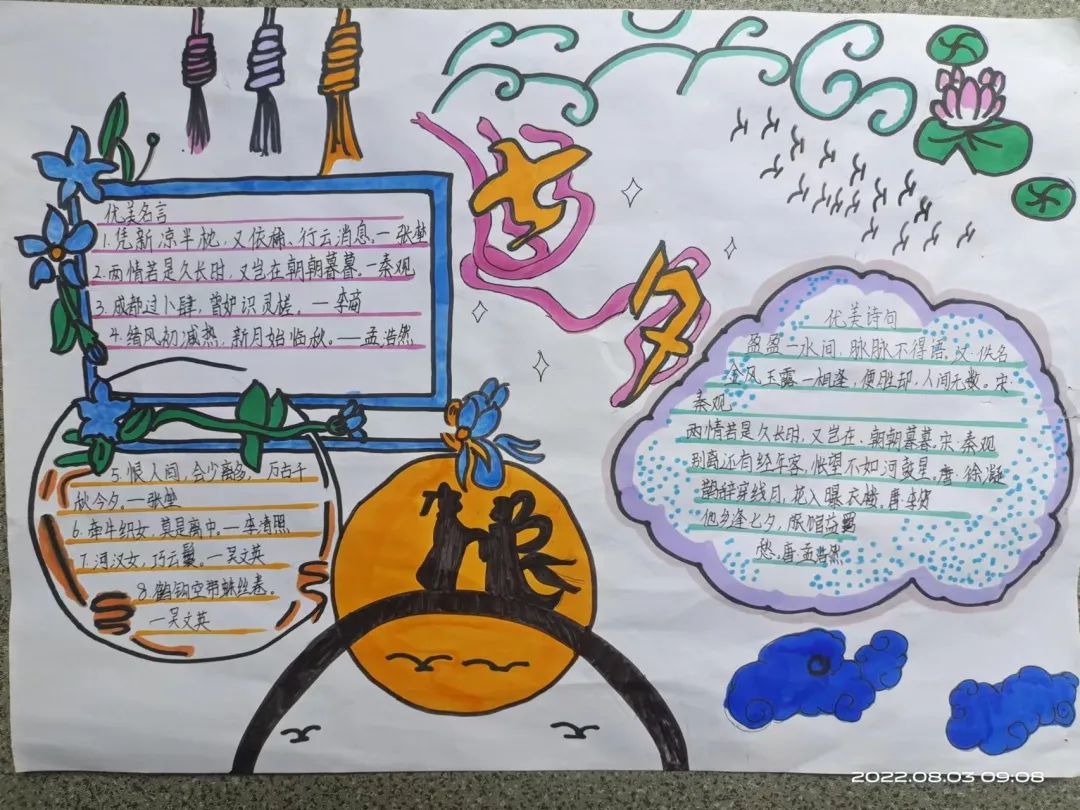 七夕
优美名言
1.凭新凉半枕,又依稀、行云消息。一张埜
2.两情若是久长时,又岂在朝朝暮暮。一秦观
3.成都过卜肆,曾妒识灵槎。一李商
4.绪风初减热,新月始临秋。——孟浩然
5.恨人间,会少离多,万古千
秋今夕。一张埜
6.牵牛织女,莫是离中。一李清照
7.河汉女,巧云鬟。一吴文英
8.钩空带蛛丝卷。
一吴文英
优美诗句
盈盈一水间,脉脉不得语。汉·佚名
金风玉露一相逢,便胜却,人间无数。宋·
秦观
两情若是久长时,又岂在、朝朝暮暮宋·秦观
别离还有经年客,怅望不如河鼓星。唐·徐凝
鹊辞穿线月,花入曝衣楼。唐·李贺
他乡逢七夕,旅馆益羁
愁。唐·孟浩然
2022.08.03 09:08